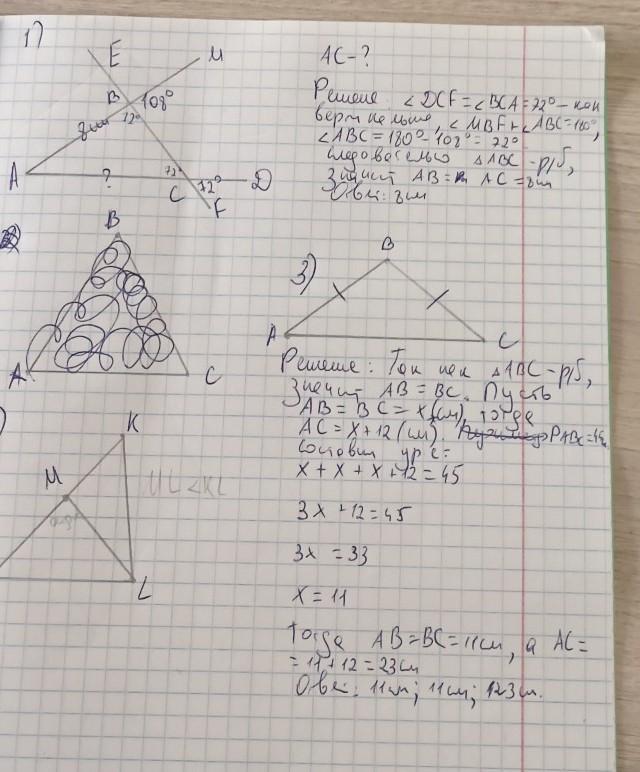 1)
E
M
B
108°
72°
8см
A
?
72°
C
72°
D
F
AC-?
Решение: ∠DCF=∠BCA=72° - как
вертикальные, ∠MBF+∠ABC=180°,
∠ABC=180°-108°=72°
следовательно △ABC-р/б,
Значит AB= AC=8см
Ответ: 8см
B
A
C
3)
B
A
C
Решение: Так как △ABC-р/б,
значит AB=BC. Пусть
AB=BC=x(см), тогда
AC=x+12(см). PABC=45
Составим ур-е:
x+x+x+12=45
3x+12=45
3x=33
x=11
Тогда AB=BC=11см, а AC=
=11+12=23см
Ответ: 11см; 11см; 23см.
)
K
M
ML<KL
L